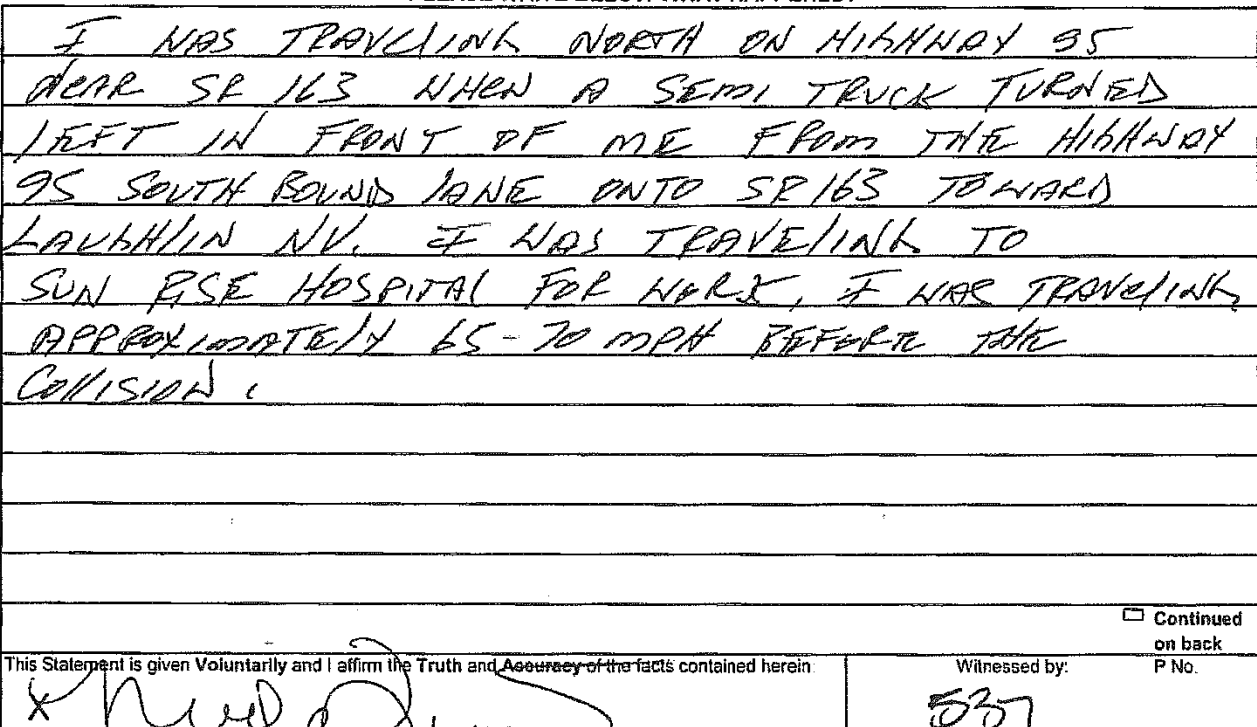 I WAS TRAVELING NORTH ON HIGHWAY 95
NEAR SR 163 WHEN A SEMI TRUCK TURNED
LEFT IN FRONT OF ME FROM THE HIGHWAY
95 SOUTH BOUND LANE ONTO SR 163 TOWARD
LAUGHLIN NV. I WAS TRAVELING TO
SUN RISE HOSPITAL FOR WORK, I WAS TRAVELING
APPROXIMATELY 65-70 MPH BEFORE THE
COLLISION.
Continued
on back
This Statement is given Voluntarily and I affirm the Truth and Accuracy of the facts contained herein:
Witnessed by: P No.
X
537